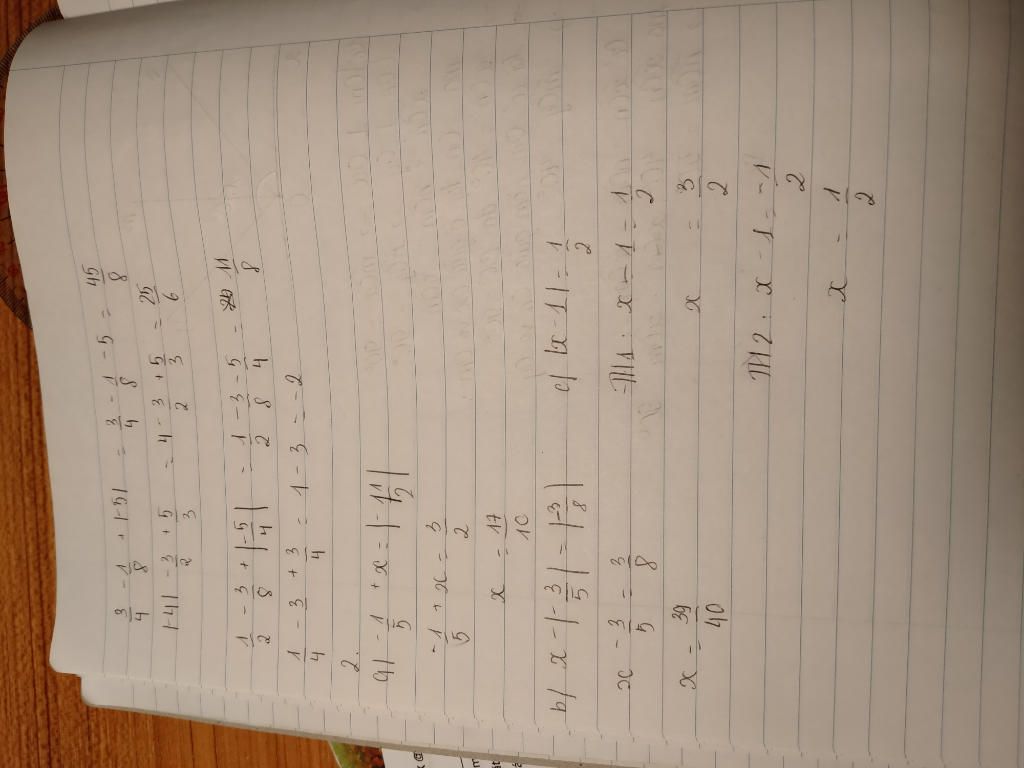 3/4 - 1/8 + |-5| = 3/4 - 1/8 - 5 = 45/8
|-4| - 3/2 + 5/3 = 4 - 3/2 + 5/3 = 25/6
1/2 - 3/8 + |-5/4| = 1/2 - 3/8 - 5/4 = 11/8
1/4 - 3 + 3/4 = 1 - 3 = -2
2.
a| -1/5 + x = |-1 1/2|
-1/5 + x = 3/2
x = 17/10
b/ x - |-3/5| = |-3/8|
x - 3/5 = 3/8
x = 39/40
c/ |x-1| = 1/2
TH1: x - 1 = 1/2
x = 3/2
TH2: x - 1 = -1/2
x = 1/2